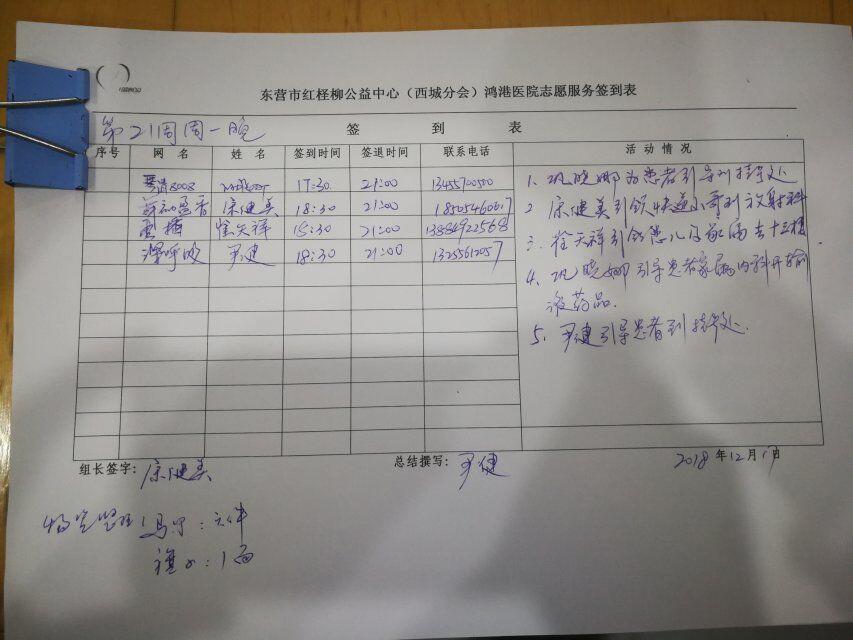 东营市红柽柳公益中心（西城分会）鸿港医院志愿服务签到表
第21周周一晚
签 到 表
序号 网 名 姓 名 签到时间 签退时间 联系电话 活 动 情 况
8008 17:30. 21:00 13455700500
宋健美 18:30 21:00 18505460617
徐天祥 18:30 21:00 13884922568
深呼吸 尹健 18:30 21:00 13255612057
1、巩晓娜为患者引导到挂号处
2、宋健美引领快递小哥到放射科
3、徐天祥引领患儿及家属去十三楼
4、巩晓娜引导患者家属内科开输
液药品.
5、尹健引导患者到挂号处.
组长签字: 宋健美 总结撰写: 尹健 2018年12月17日
物资管理 马甲:六件
旗子:1面